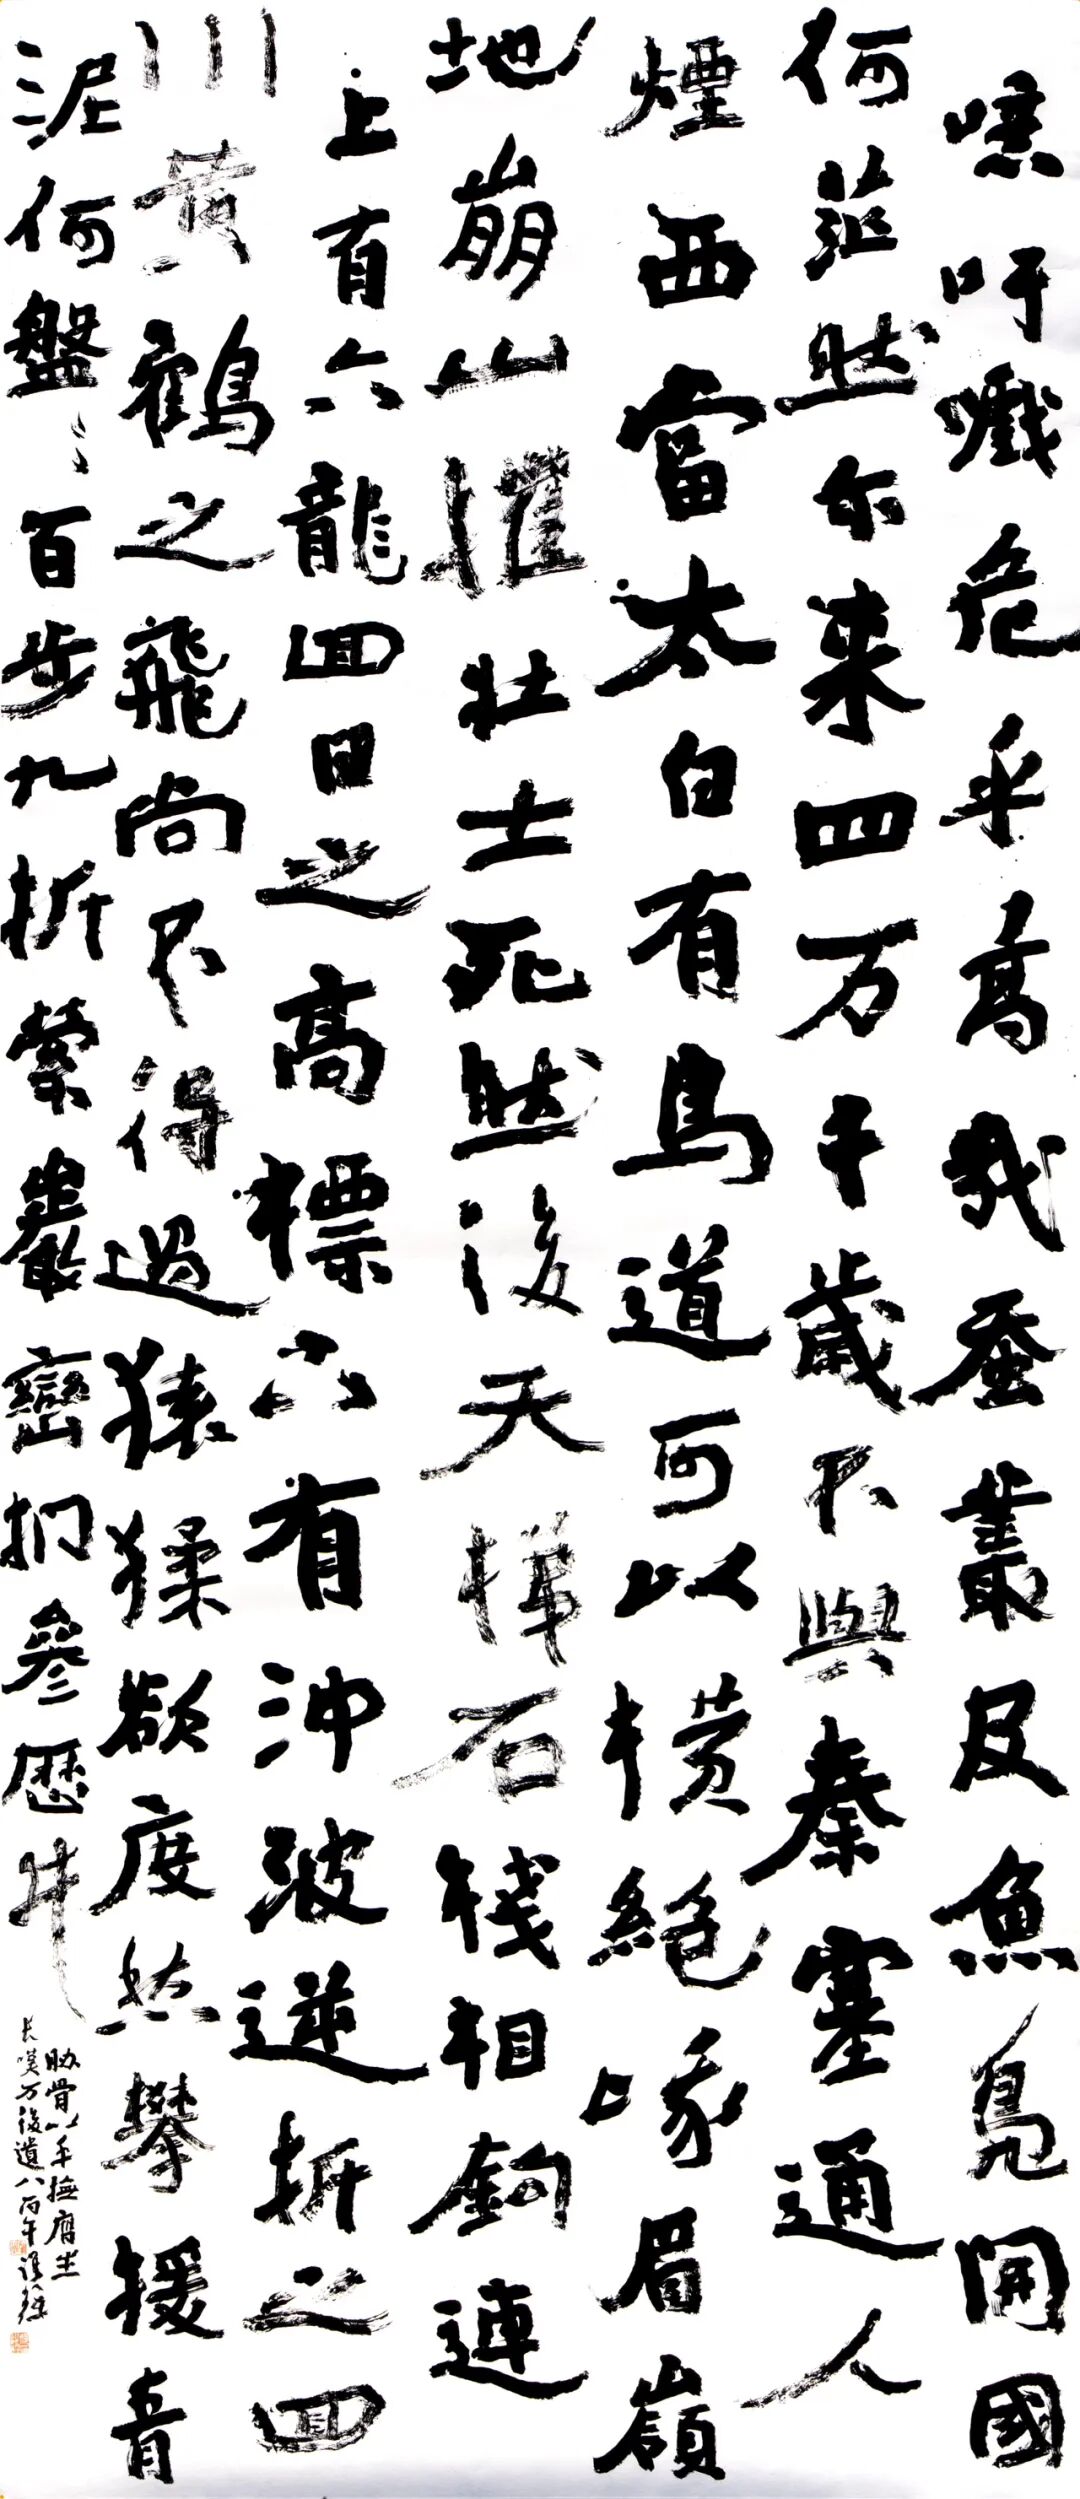 噫吁巇危乎高我蚕叢及魚鳧開國
何茫然尓来四万千歲不與秦塞通人
煙西當太白有鳥道可以横絶峨眉嶺
地崩山摧壯士死然後天梯石棧相鉤連
上有六龍回日之高標下有沖波逆折之回
川黄鶴之飛尚不得過猿猱欲度愁攀援青
泥何盤〻百步九折縈巖巒捫參歷井
胁骨以手撫膺坐
長嘆万後遺八丙午